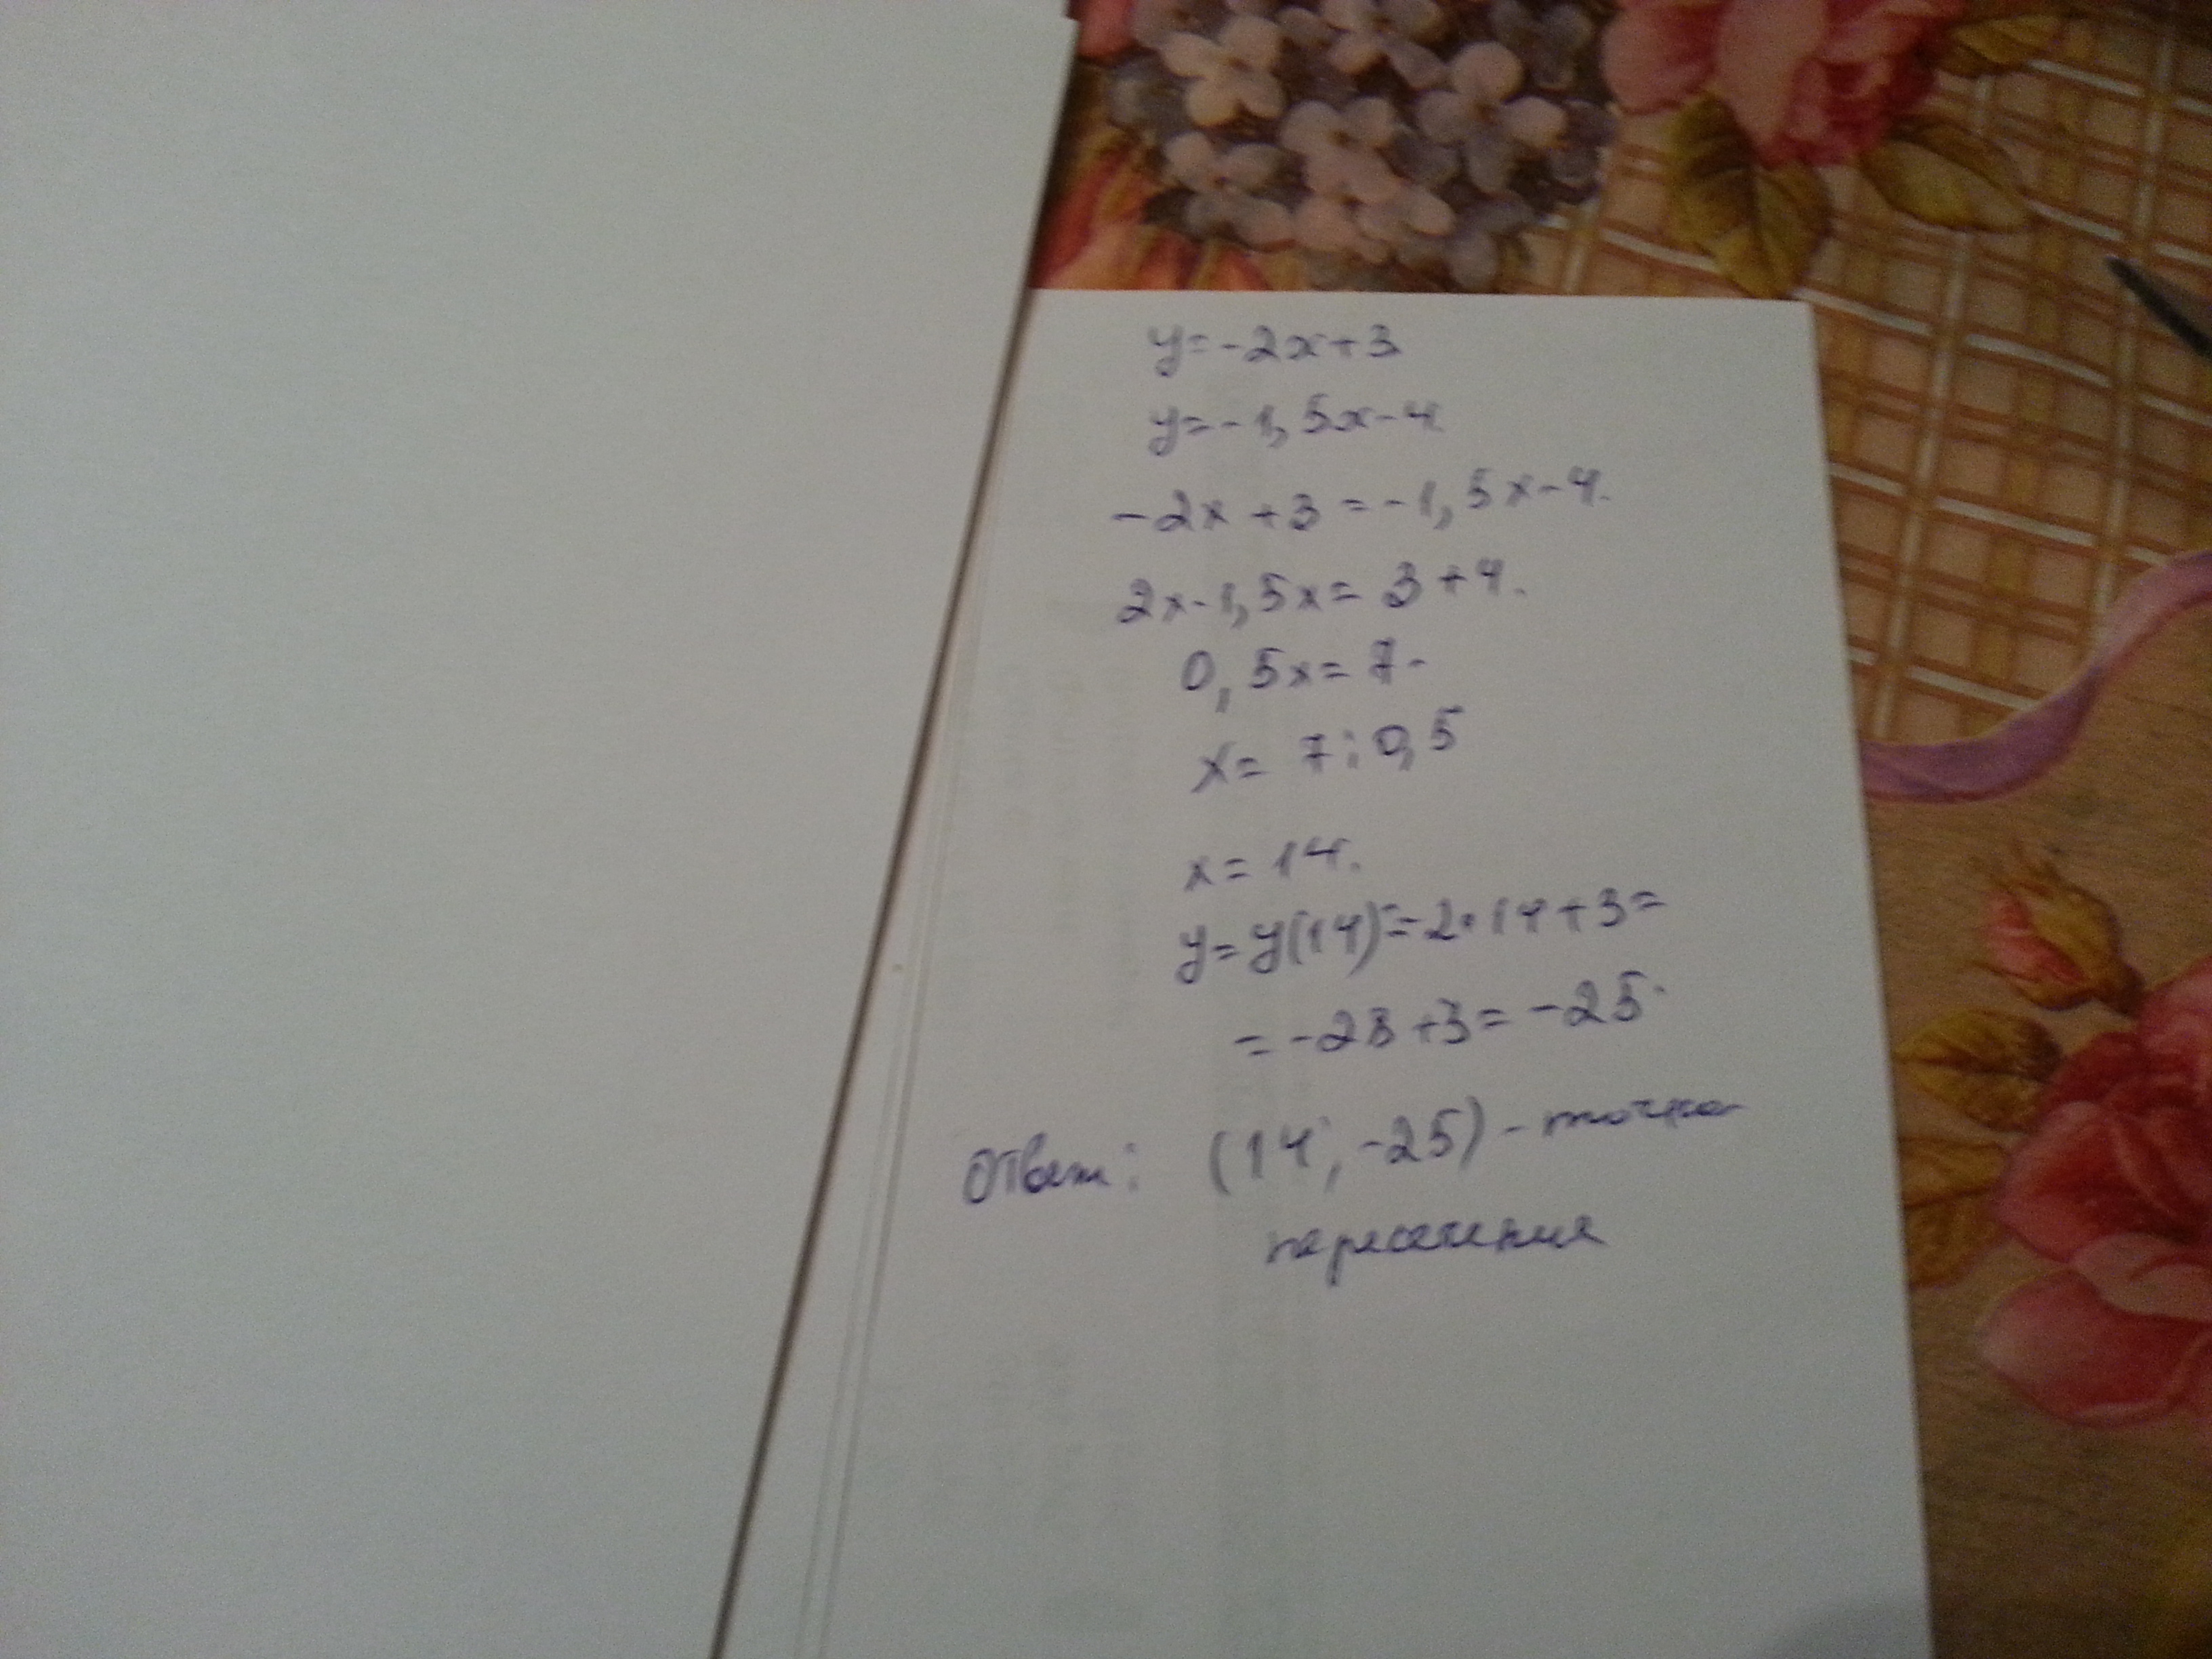 y=-2x+3
y=-1,5x-4.
-2x+3=-1,5x-4.
2x-1,5x=3+4.
0,5x=7.
x=7:0,5
x=14.
y=y(14)=-2·14+3=
=-28+3=-25.
Ответ: (14; -25) - точка
пересечения